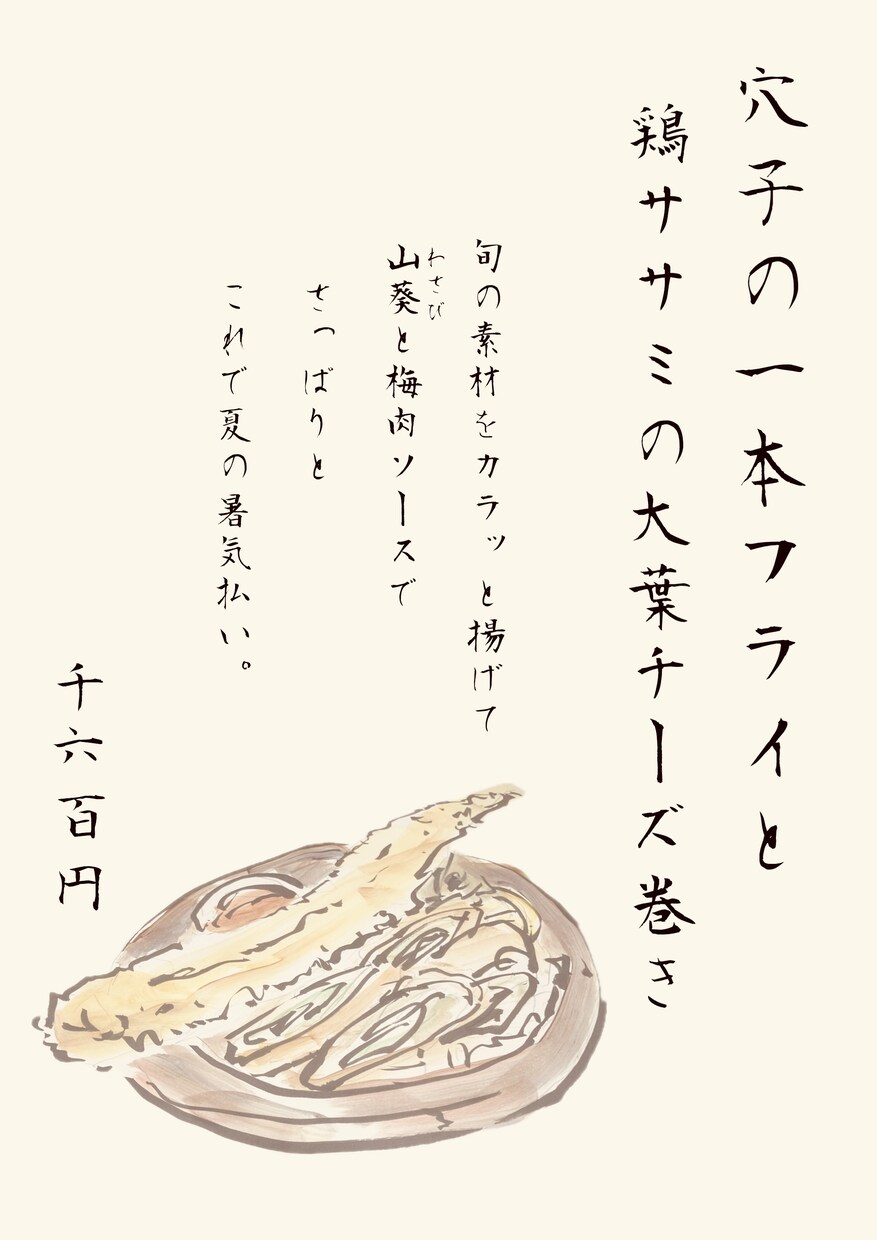 穴子の一本フライと
鶏ササミの大葉チーズ巻き
旬の素材をカラッと揚げて
わさび
山葵と梅肉ソースで
さっぱりと
これで夏の暑気払い。
千六百円